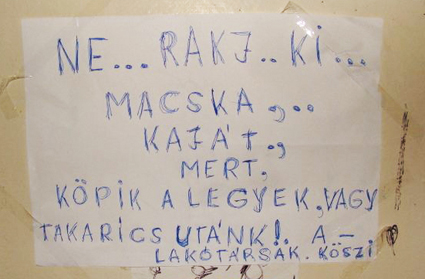 NE... RAKJ.. KI...
MACSKA,..
KAJÁT.,
MERT,
KÖPIK A LEGYEK, VAGY
TAKARICS UTÁNK!. A -
LAKÓTÁRSAK. KÖSZI